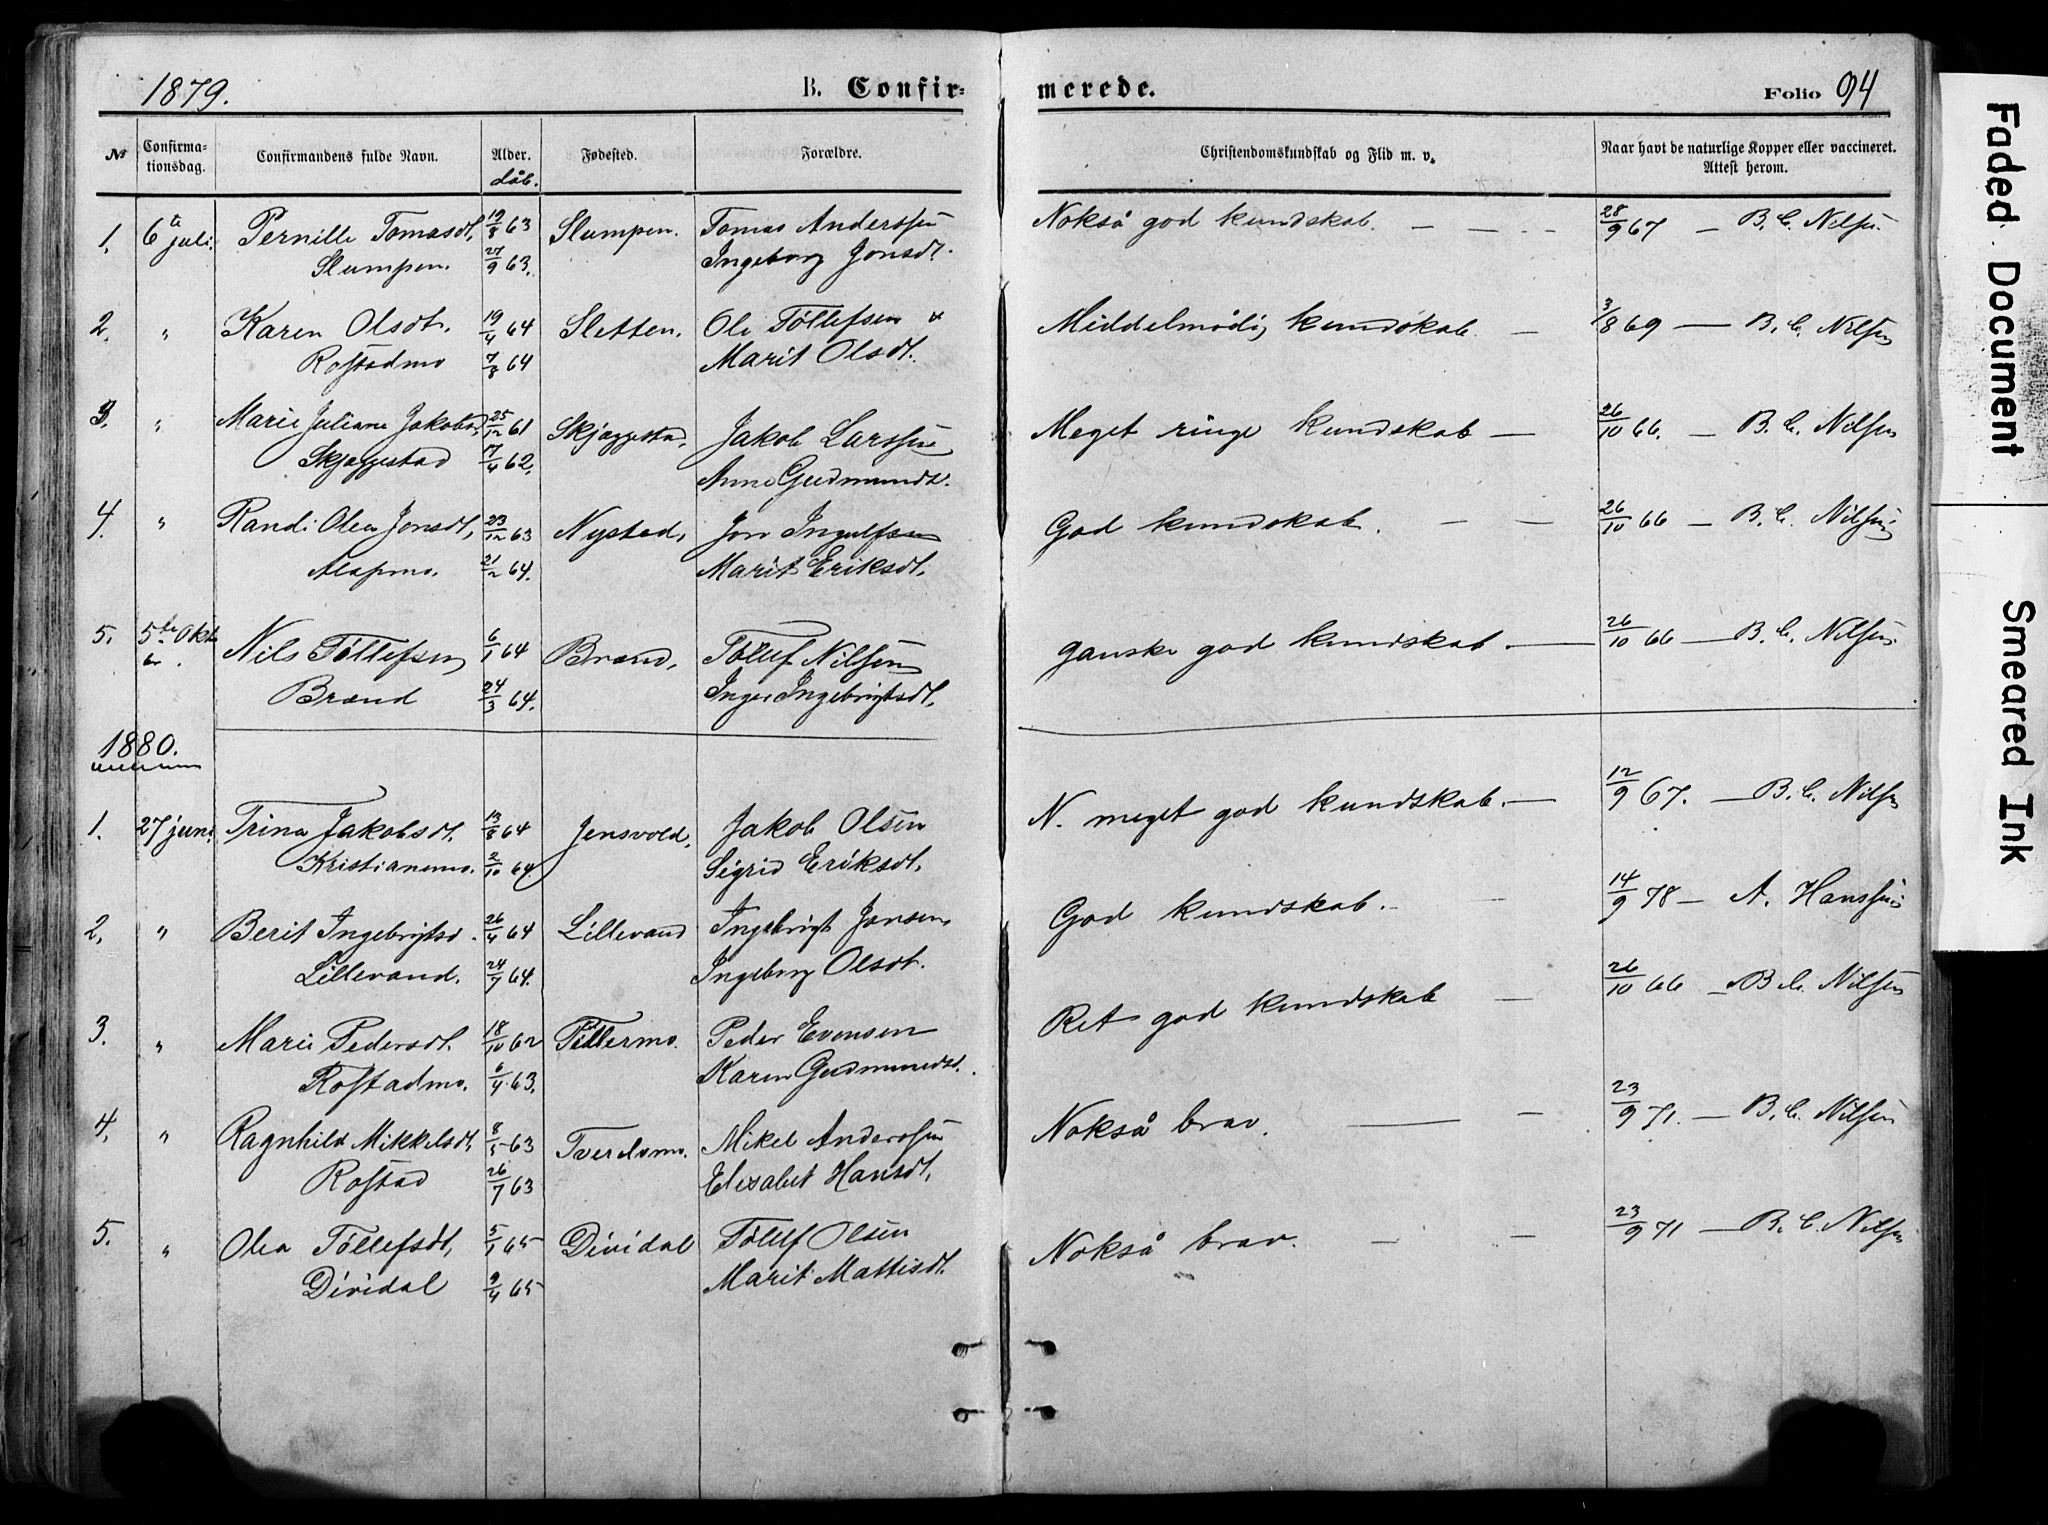 1879. B. Confir= merede. Folio 94
№ Confirma=tionsdag. Confirmandens fulde Navn. Alder. dåb. Fødested. Forældre. Christendomskundskab og Flid m. v. Naar havt de naturlige Kopper eller vaccineret. Attest herom.
1. 6te juli. Pernille Tomasdt. 19/8 63 Slumpen. Tomas Anderssen Nokså god kundskab. — — - - 28/9 67 — B. C. Nilsen.
Slumpen. 27/9 63. Ingeborg Jonsdt.
2. " Karen Olsdt. 19/4 64 Sletten. Ole Tøllefsen Middelmådig kundskab. — 3/8 69 — B. C. Nilsen
Rostadmo 7/8 64 Marit Olsdt.
3. " Marie Juliane Jakobsd. 25/12 61 Skjæggestad. Jakob Larssen Meget ringe kundskab — 26/10 66. — B. C. Nilsen
Skjæggestad 17/4 62. Anne Gudmundsd.
4. " Randi Olea Jonsdt. 23/12 63 Nystad. Jon Ingulfsen God kundskab. — — 26/10 66 — B. C. Nilsen
Alapmo. 21/2 64. Marit Eriksdt.
5. 5te Okt. Nils Tøllefsen 6/1 64 Brænd. Tøllef Nilsen ganske god kundskab. — 26/10 66 — B. C. Nilsen
Brænd 24/3 64. Inger Ingebrigtsdt.
1880.
1. 27 juni. Trina Jakobsdt. 13/8 64 Jensvold. Jakob Olsen N. meget god kundskab. — 12/9 67. — B. C. Nilsen
Kristianemo. 2/10 64. Sigrid Eriksdt.
2. " Berit Ingebrigtsd. 26/4 64 Lillevand Ingebrigt Jonsen God kundskab. — 14/9 78 — A. Hanssen
Lillevand. 24/7 64. Ingeborg Olsdt.
3. " Marie Pedersdt. 18/10 62 Peder Evensen Ret god kundskab — 26/10 66 — B. C. Nilsen
Rostadmo. 6/4 63. Karen Gudmundsd.
4. " Ragnhild Mikkelsdt. 8/5 63 Tverelvmo. Mikel Anderssen Nokså brav. — — 23/9 71. — B. C. Nilsen
Rostad 26/7 63 Elisabet Hansdt.
5. " Olea Tøllefsdt. 5/1 65 Dividal Tøllef Olsen Nokså brav. — — 23/9 71 — B. C. Nilsen
Dividal 9/4 65 Marit Mattisdt.
Faded Document
Smeared Ink